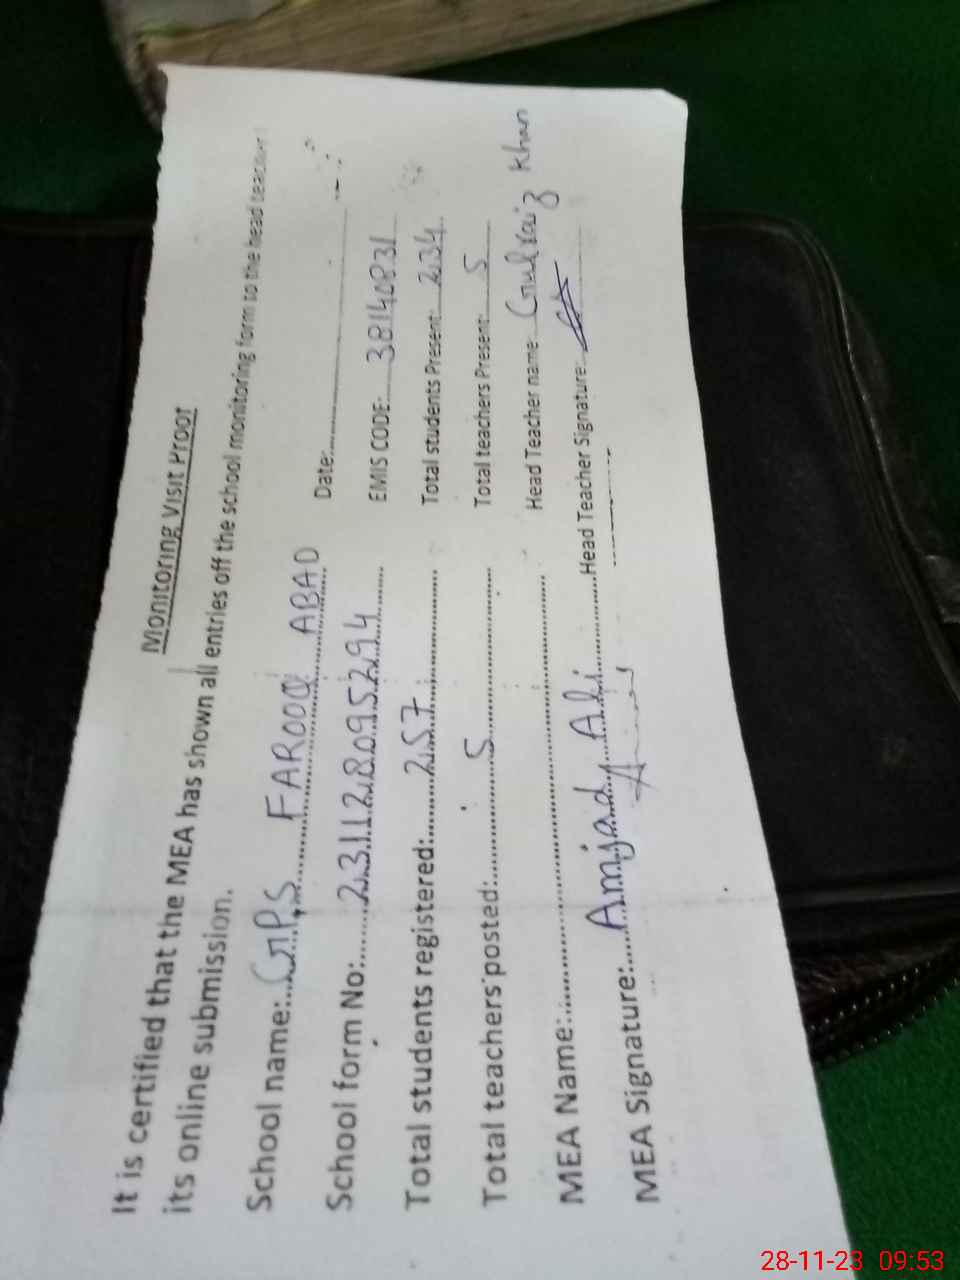 Monitoring Visit Proof
It is certified that the MEA has shown all entries off the school monitoring form to the head teacher
its online submission.
School name: GPS FAROOQ ABAD Date:
School form No: 231128095294 EMIS CODE: 38140831
Total students registered: 257 Total students Present: 234
Total teachers posted: 5 Total teachers Present: 5
MEA Name: Amjad Ali Head Teacher name: Gulraiz Khan
MEA Signature: Head Teacher Signature:
28-11-23 09:53